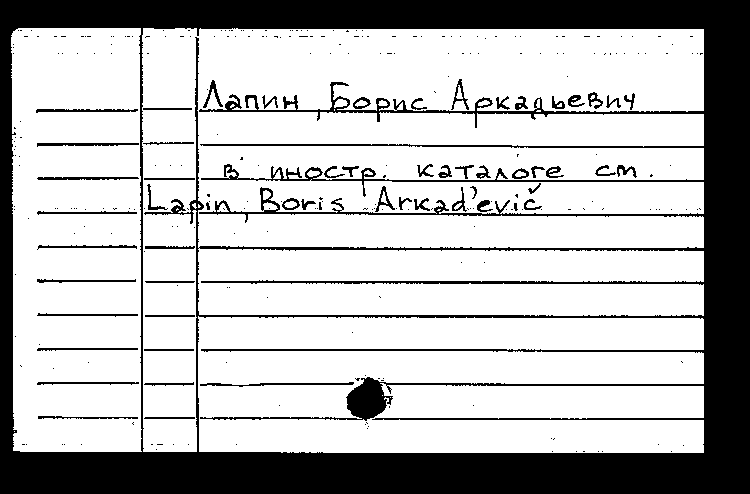 Лапин, Борис Аркадьевич
в иностр. каталоге см.
Lapin, Boris Arkad'evič